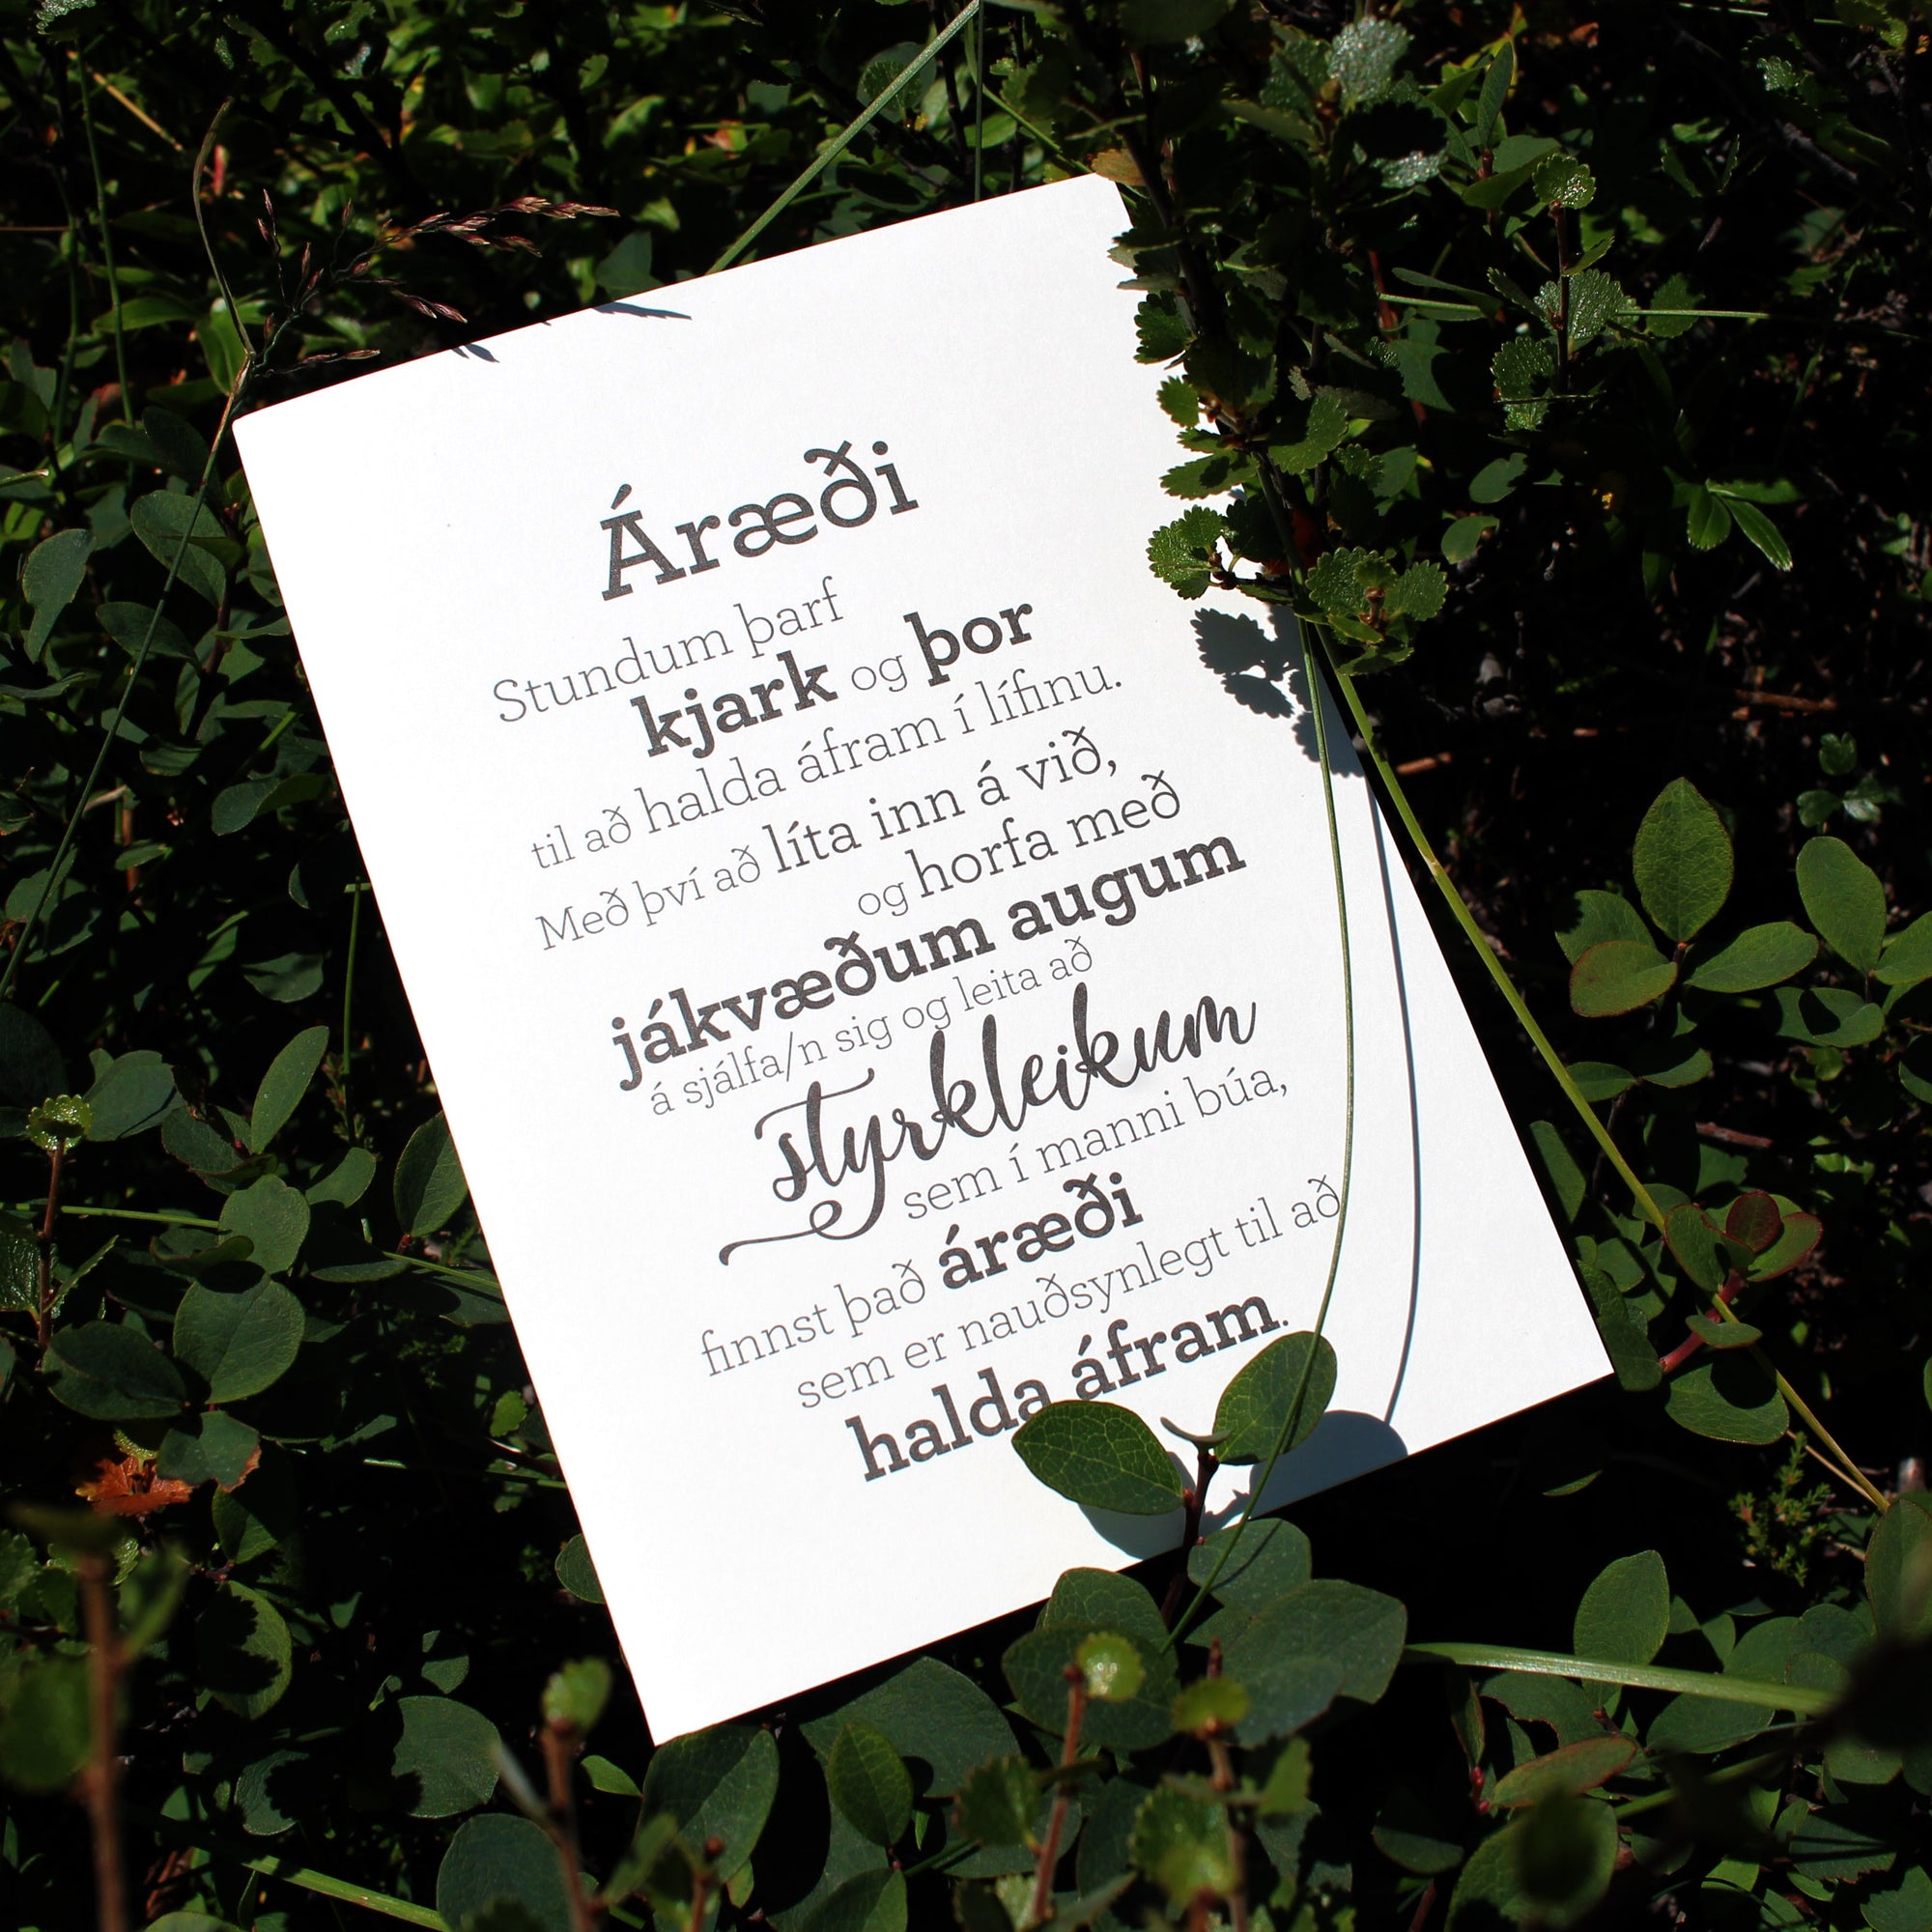 Áræði
Stundum þarf
kjark og þor
til að halda áfram í lífinu.
Með því að líta inn á við,
og horfa með
jákvæðum augum
á sjálfa/n sig og leita að
styrkleikum
sem í manni búa,
finnst það áræði
sem er nauðsynlegt til að
halda áfram.